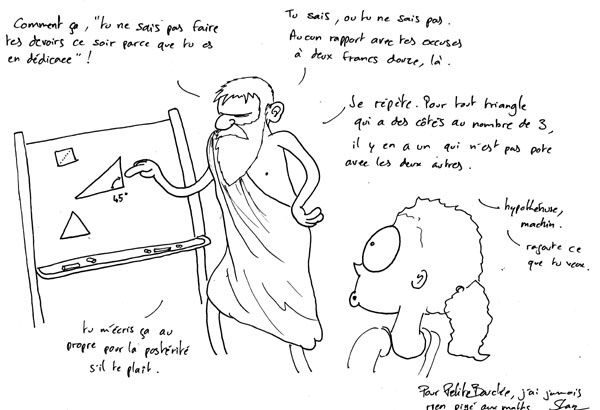 Comment ça, "tu ne sais pas faire
tes devoirs ce soir parce que tu es
en dédicace" !
Tu sais, ou tu ne sais pas.
Aucun rapport avec tes excuses
à deux francs douze, là.
Je répète. Pour tout triangle
qui a des côtés au nombre de 3,
il y en a un qui n'est pas pote
avec les deux autres.
hypothénuse,
machin.
rajoute ce
que tu veux.
45°
tu m'écris ça au
propre pour la postérité
s'il te plait.
Pour PetiteBouclée, j'ai jamais
rien pigé aux maths.